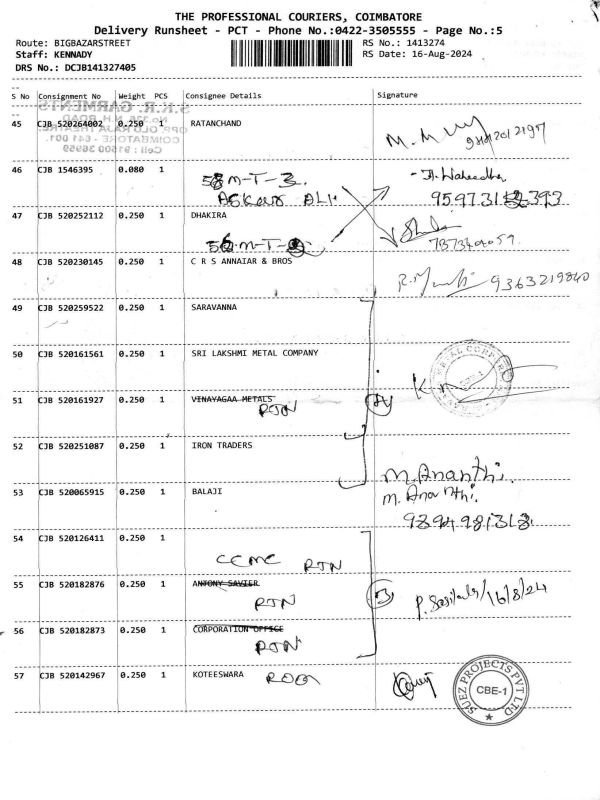 THE PROFESSIONAL COURIERS, COIMBATORE
Delivery Runsheet - PCT - Phone No.:0422-3505555 - Page No.:5
Route: BIGBAZARSTREET RS No.: 1413274
Staff: KENNADY RS Date: 16-Aug-2024
DRS No.: DCJB141327405
S No Consignment No Weight PCS Consignee Details Signature
S.K.R. GARMENTS
45 CJB 520264002 0.250 1 RATANCHAND
OPP. OLD RAJA THEATRE,
COIMBATORE - 641 001.
Cell : 91500 36959
46 CJB 1546395 0.080 1
M-T-3.
ASKAR ALI
47 CJB 520252112 0.250 1 DHAKIRA
7373404059
M-T-
48 CJB 520230145 0.250 1 C R S ANNAIAR & BROS
9363219840
49 CJB 520259522 0.250 1 SARAVANNA
50 CJB 520161561 0.250 1 SRI LAKSHMI METAL COMPANY
51 CJB 520161927 0.250 1 VINAYAGAA METALS
RTN
52 CJB 520251087 0.250 1 IRON TRADERS
M. Ananthi.
53 CJB 520065915 0.250 1 BALAJI M. Ananthi.
9894981318
54 CJB 520126411 0.250 1
CCMC RTN
55 CJB 520182876 0.250 1 ANTONY SAVIER
RTN 3 P. Sasikala/16/8/24
56 CJB 520182873 0.250 1 CORPORATION OFFICE
RTN
57 CJB 520142967 0.250 1 KOTEESWARA
SUEZ PROJECTS PVT LTD
CBE-1